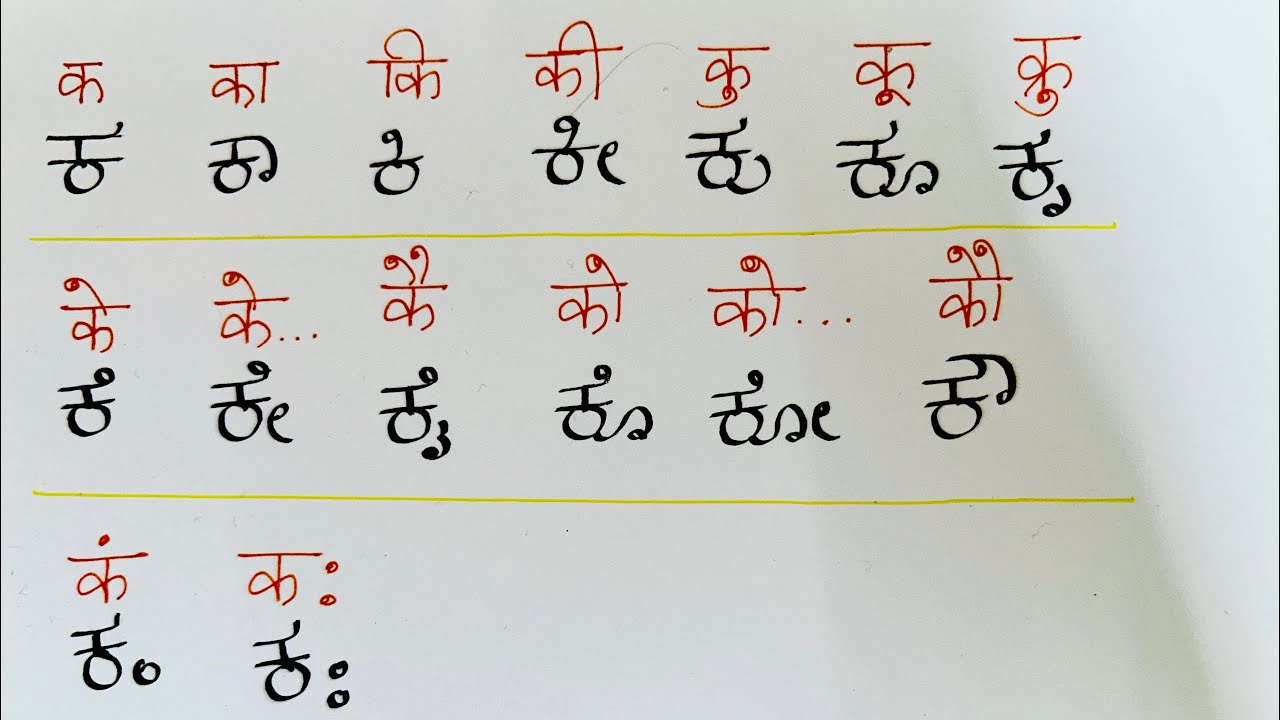 क का कि की कु कू क्रु
ಕ ಕಾ ಕಿ ಕೀ ಕು ಕೂ ಕೃ
के के... कै को को... कौ
ಕೆ ಕೇ ಕೈ ಕೊ ಕೋ ಕೌ
कं कः
ಕಂ ಕಃ